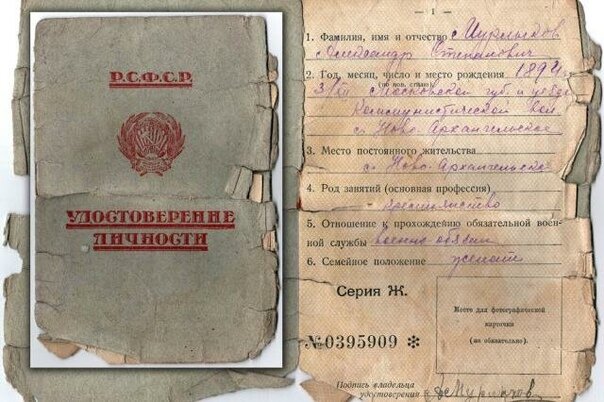 Р.С.Ф.С.Р.
УДОСТОВЕРЕНИЕ
ЛИЧНОСТИ
— 1 —
1. Фамилия, имя и отчество
Александр Степанович
2. Год, месяц, число и место рождения 1894 г.
(по нов. стилю)
Московской губ. и уезда
Коммунистической вол.
с. Ново-Архангельское
3. Место постоянного жительства
с. Ново-Архангельское
4. Род занятий (основная профессия)
крестьянство
5. Отношение к прохождению обязательной воен-
ной службы военно обязан
6. Семейное положение женат
Серия Ж.
№0395909 ✻
Место для фотографической
карточки
(не обязательно).
Подпись владельца
удостоверения